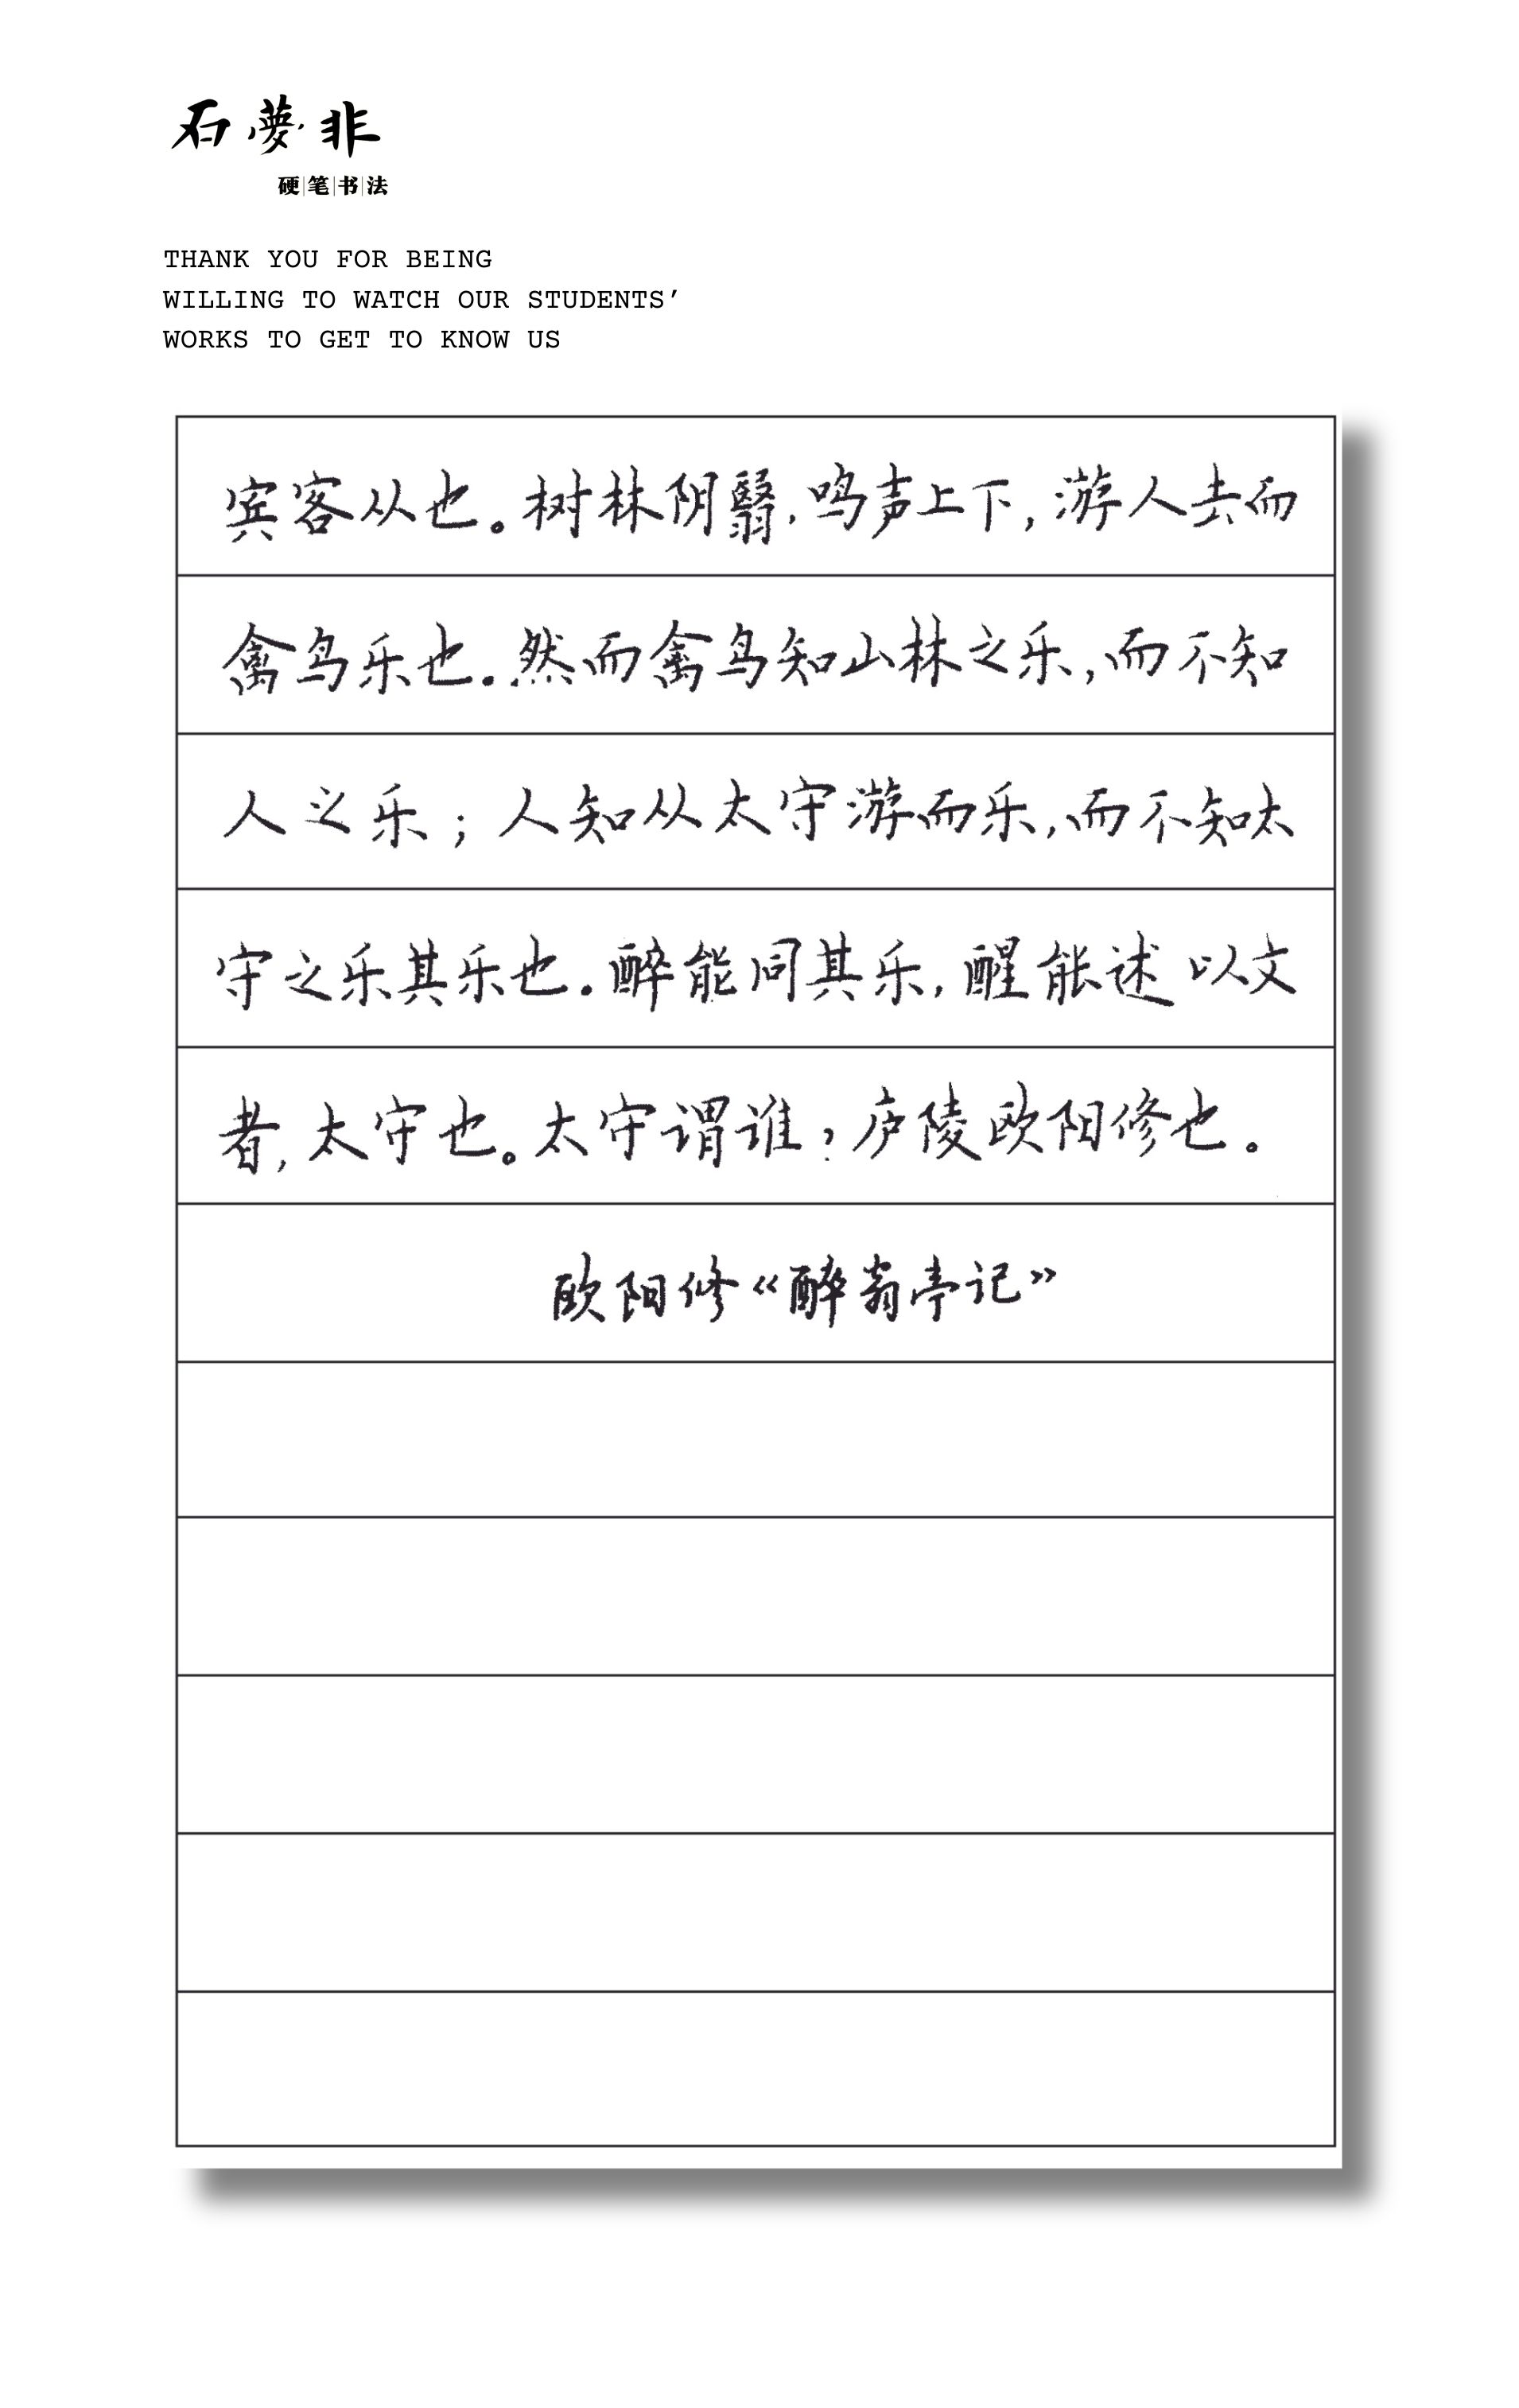 石夢非
硬笔书法
THANK YOU FOR BEING
WILLING TO WATCH OUR STUDENTS’
WORKS TO GET TO KNOW US
宾客从也。树林阴翳,鸣声上下,游人去而
禽鸟乐也。然而禽鸟知山林之乐,而不知
人之乐;人知从太守游而乐,而不知太
守之乐其乐也。醉能同其乐,醒能述以文
者,太守也。太守谓谁?庐陵欧阳修也。
欧阳修《醉翁亭记》